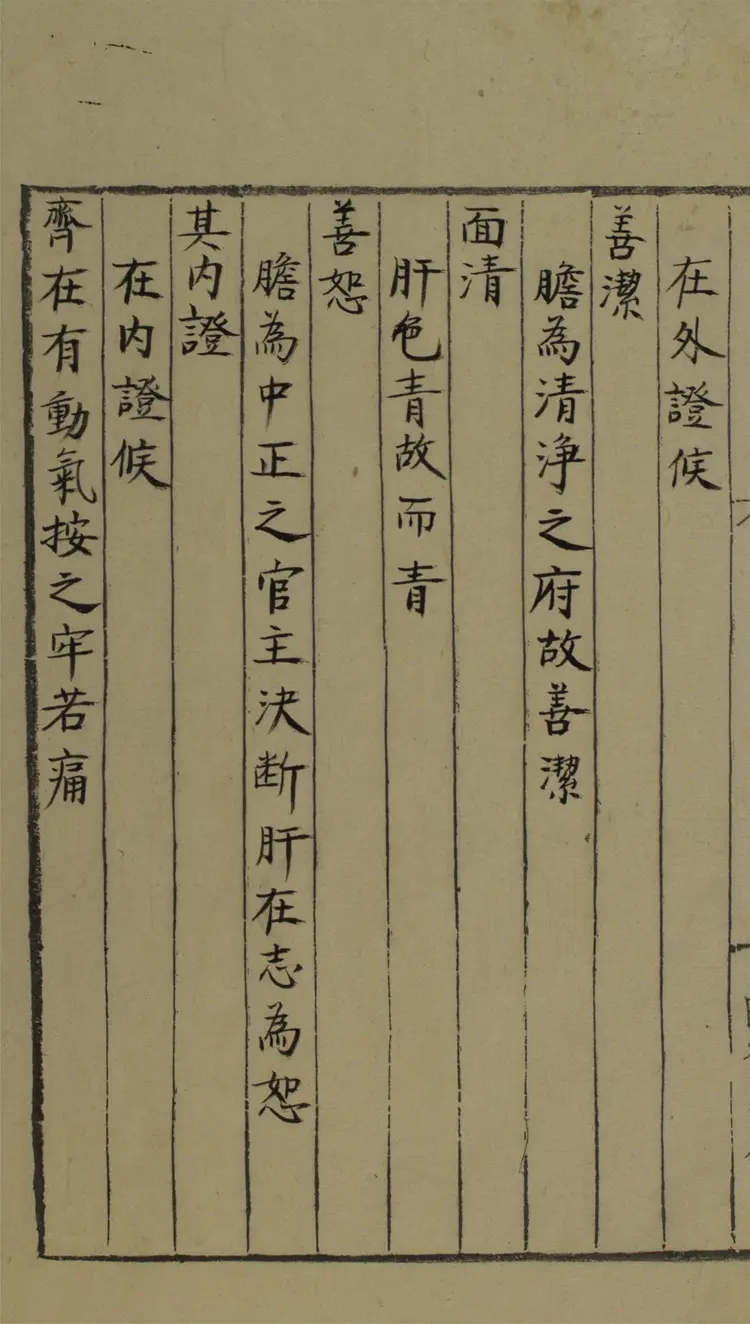 在外證候
善潔
膽為清淨之府故善潔
面清
肝色青故而青
善恕
膽為中正之官主決断肝在志為恕
其内證
在内證候
齊在有動氣按之牢若痛